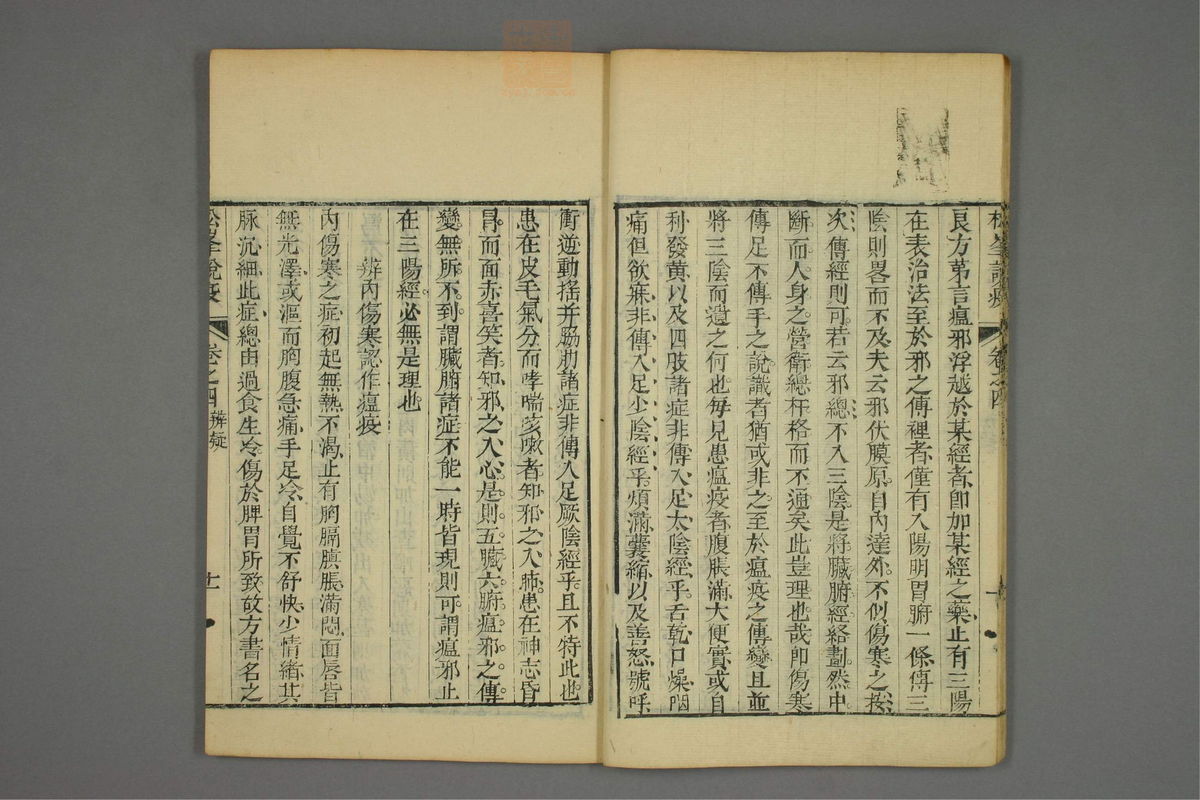 松峯說疫 卷之四
良方第言瘟邪浮越於某經者卽加某經之藥止有三陽
在表治法至於邪之傳裡者僅有入陽明胃腑一條傳三
陰則畧而不及夫云邪伏膜原自內達外不似傷寒之按
次傳經則可若云邪總不入三陰是將臟腑經絡劃然中
斷而人身之營衛總扞格而不通矣此豈理也哉卽傷寒
傳足不傳手之說識者猶或非之至於瘟疫之傳變且並
將三陰而遺之何也每見患瘟疫者腹脹滿大便實或自
利發黃以及四肢諸症非傳入足太陰經乎舌乾口燥咽
痛但欲寐非傳入足少陰經乎煩滿囊縮以及善怒號呼
衝逆動搖幷脇肋諸症非傳入足厥陰經乎且不特此也
患在皮毛氣分而哮喘咳嗽者知邪之入肺患在神志昏
冒而面赤喜笑者知邪之入心是則五臟六腑瘟邪之傳
變無所不到謂臟腑諸症不能一時皆現則可謂瘟邪止
在三陽經必無是理也
辨內傷寒認作瘟疫
內傷寒之症初起無熱不渴止有胸膈䐜脹滿悶面唇皆
無光澤或漚而胸腹急痛手足冷自覺不舒快少情緒其
脉沉細此症總由過食生冷傷於脾胃所致故方書名之
松峯說疫 卷之四 辨疑 十一